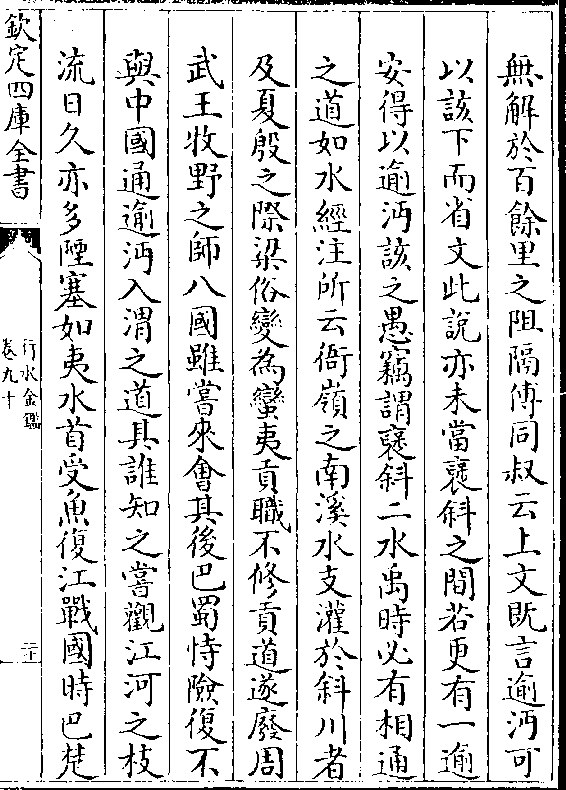 無解於百餘里之阻隔傅同叔云上文既言逾沔可
以該下而省文此說亦未當襃斜之間若更有一逾
安得以逾沔該之愚竊謂襃斜二水禹時必有相通
之道如水經注所云衙嶺之南溪水支灌於斜川者
及夏殷之際梁俗變為蠻夷貢職不修貢道遂廢周
武王牧野之師八國雖嘗來會其後巴蜀恃險復不
與中國通逾沔入渭之道其誰知之嘗觀江河之枝
流日久亦多陻塞如夷水首受魚復江戰國時巴楚
欽定四庫全書
行水金鑑
卷九十
二十